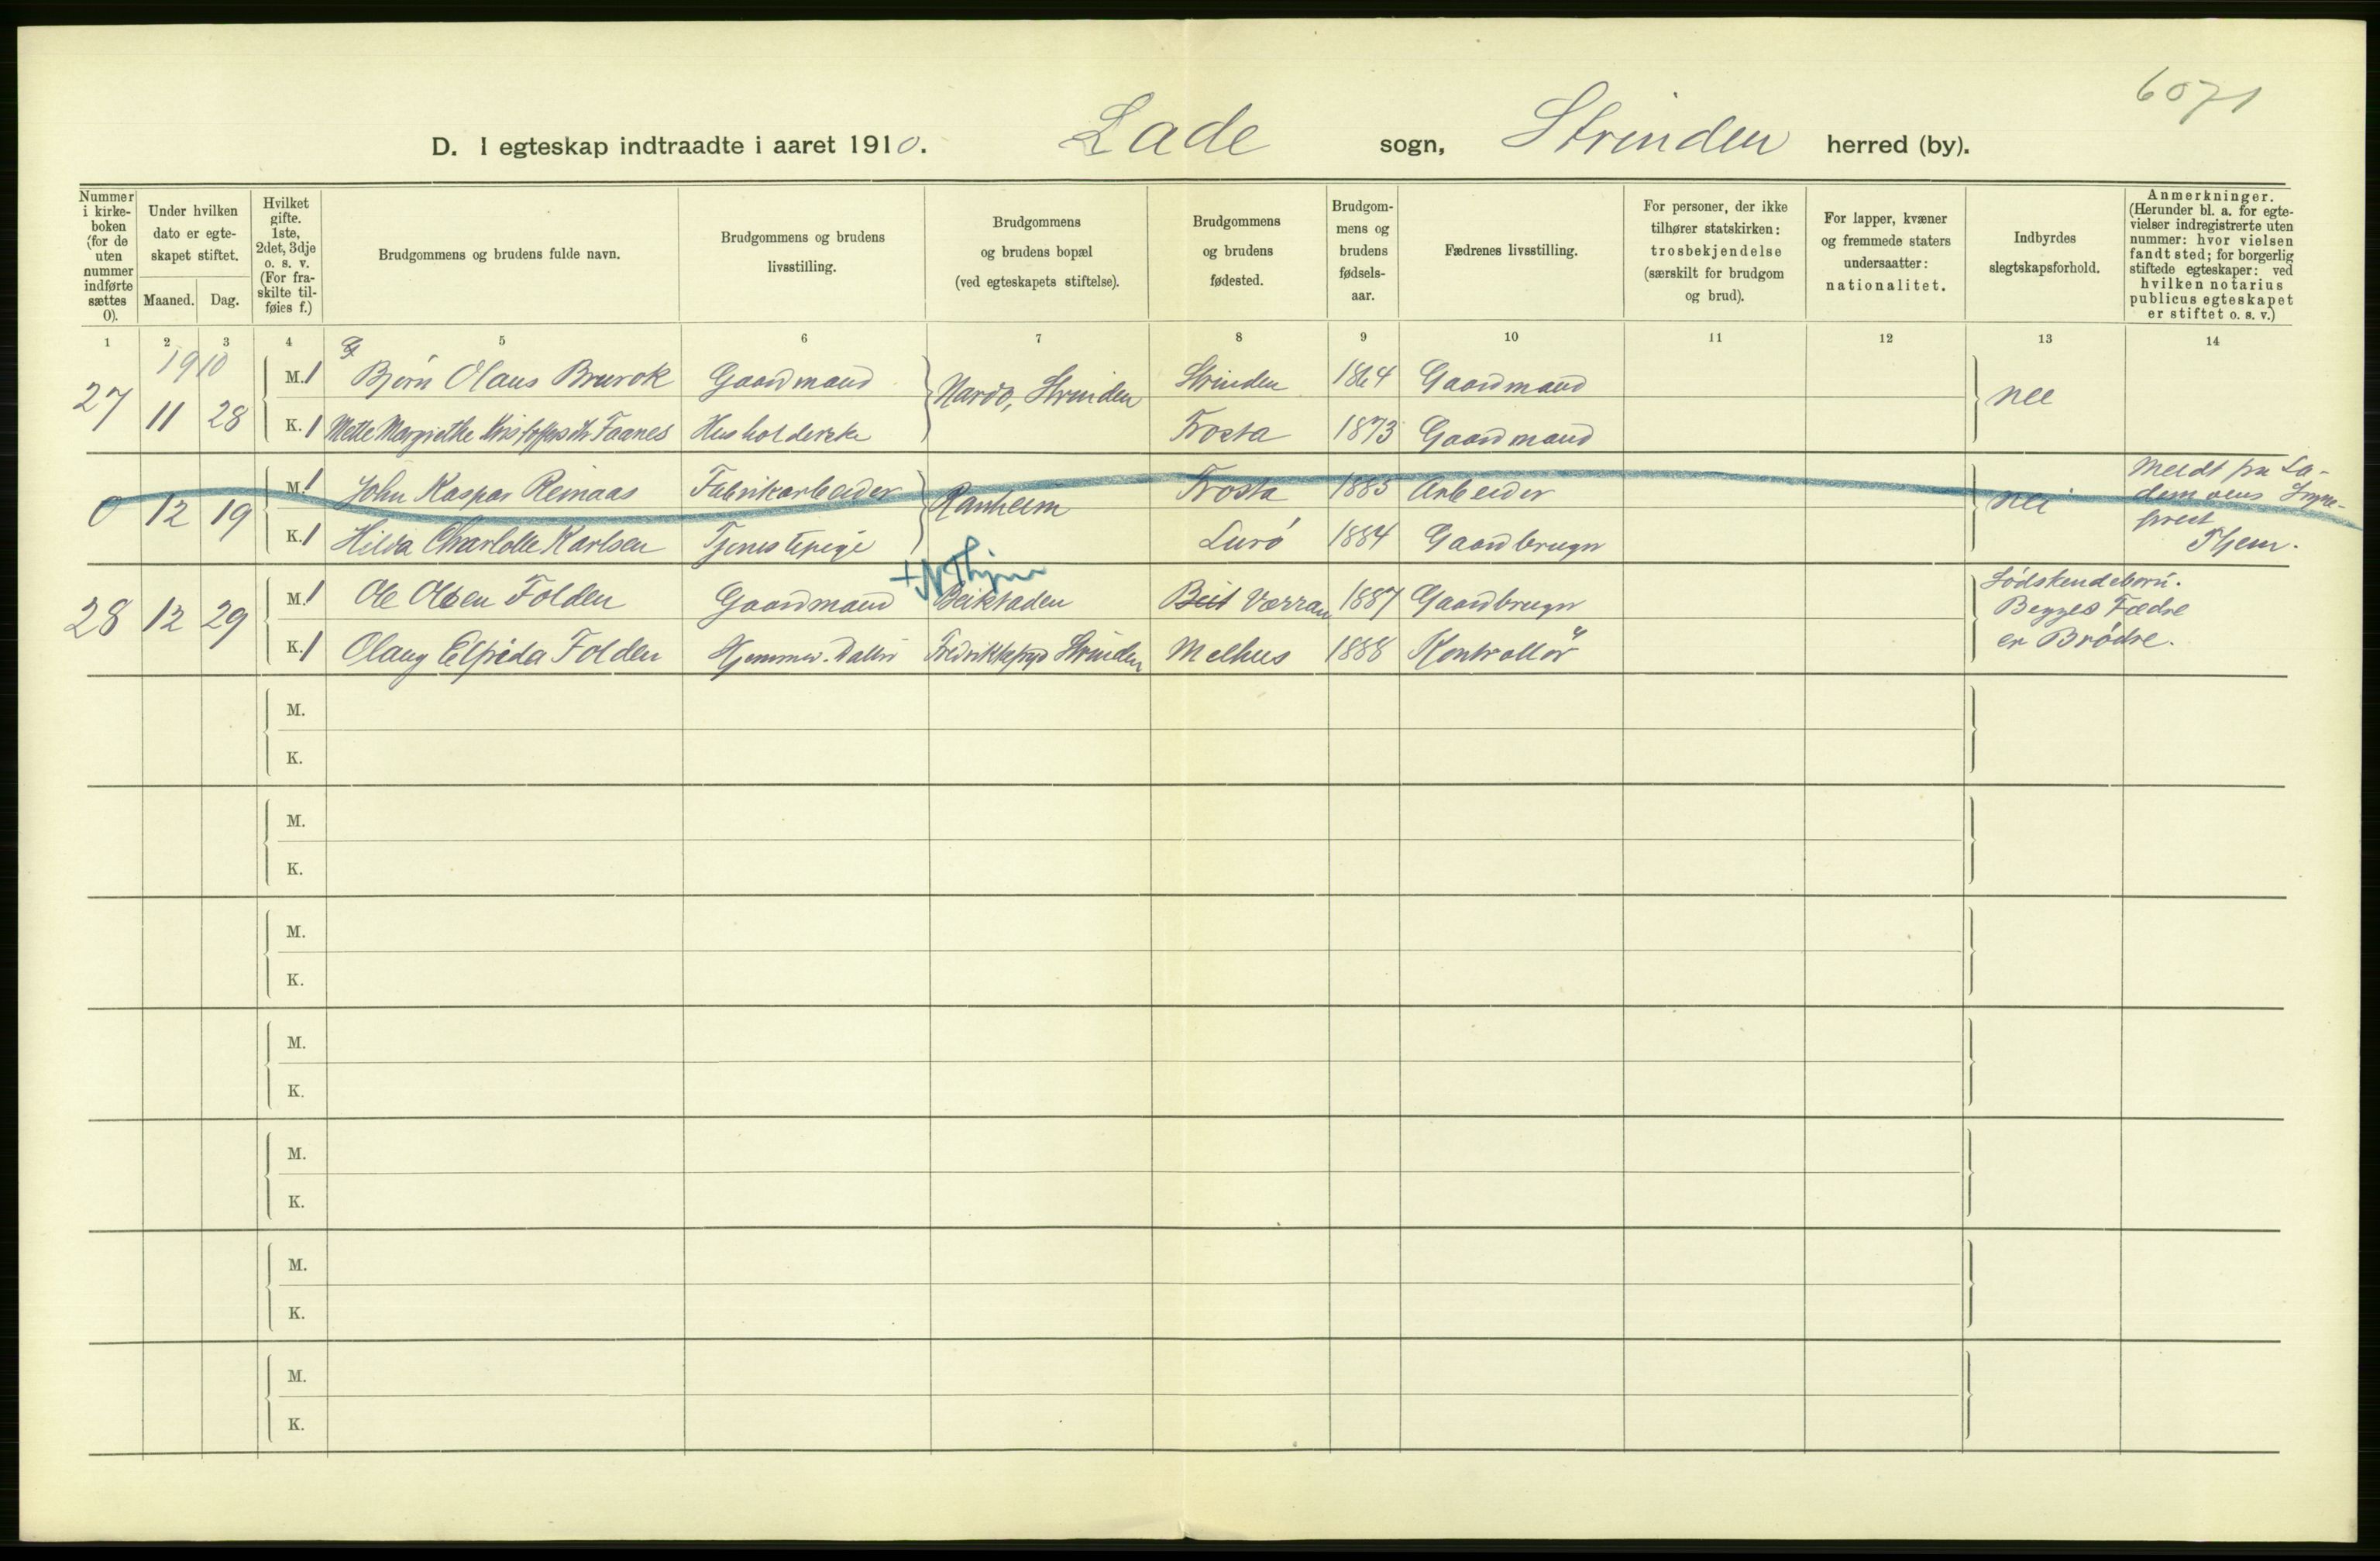 6071
D. I egteskap indtraadte i aaret 1910. Lade sogn, Strinden herred (by).
Nummer i kirke-boken (for de uten nummer indførte sættes 0).
Under hvilken dato er egte-skapet stiftet.
Maaned. Dag.
Hvilket gifte. 1ste, 2det, 3dje o. s. v. (For fra-skilte til-føies f.)
Brudgommens og brudens fulde navn.
Brudgommens og brudens livsstilling.
Brudgommens og brudens bopæl (ved egteskapets stiftelse).
Brudgommens og brudens fødested.
Brudgom-mens og brudens fødsels-aar.
Fædrenes livsstilling.
For personer, der ikke tilhører statskirken: trosbekjendelse (særskilt for brudgom og brud).
For lapper, kvæner og fremmede staters undersaatter: nationalitet.
Indbyrdes slegtskapsforhold.
Anmerkninger. (Herunder bl. a. for egte-vielser indregistrerte uten nummer: hvor vielsen fandt sted; for borgerlig stiftede egteskaper: ved hvilken notarius publicus egteskapet er stiftet o. s. v.)
1 2 3 4 5 6 7 8 9 10 11 12 13 14
1910
27 11 28
M. 1 Bjørn Olaus Brurok Gaardmand Nardo, Strinden Strinden 1864 Gaardmand nei
K. 1 Mette Margrethe Kristoffersdtr Faanes Husholderske Frosta 1873 Gaardmand
0 12 19
M. 1 John Kaspar Reinaas Fabrikarbeider Ranheim Frosta 1885 Arbeider nei
K. 1 Hilda Charlotte Karlsen Tjenestepige Lurö 1884 Gaardbruger
Meldt fra La-
demoens Sogne-
prest
Thjem.
28 12 29
M. 1 Ole Olsen Folden Gaardmand Beitstaden Beit Værran 1887 Gaardbruger
K. 1 Olaug Elfrida Folden Hjemmev. Datter Strinden Melhus 1888 Kontrollör
Södskendebørn.
Begges Fædre
er Brödre.
M.
K.
M.
K.
M.
K.
M.
K.
M.
K.
M.
K.
M.
K.